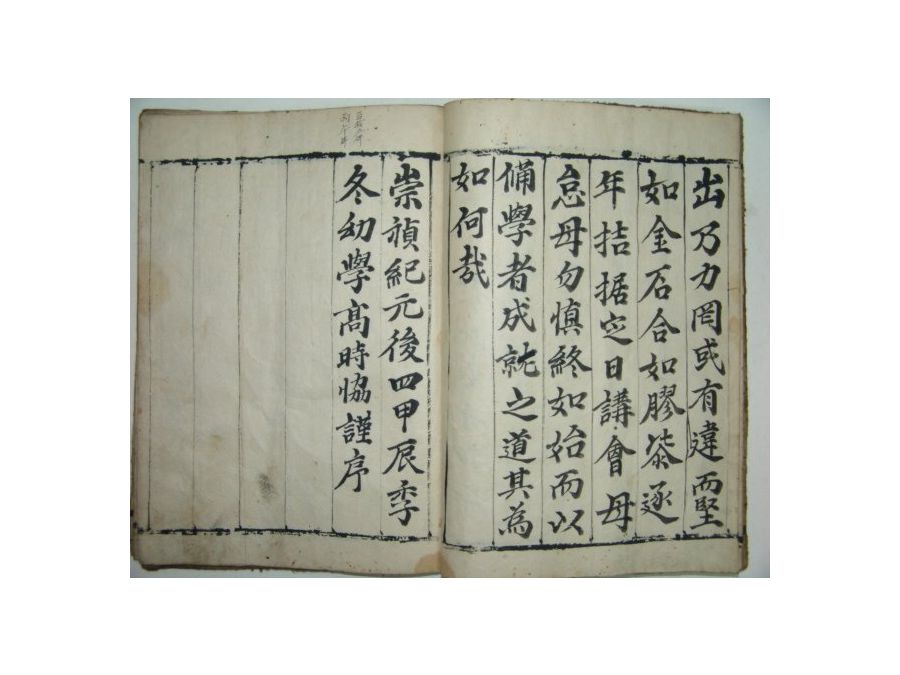 出乃力罔或有違而堅
如金石合如膠漆逐
年拮据定日講會毋
怠毋勿慎終如始而以
備學者成就之道其為
如何哉
崇禎紀元後四甲辰季
冬幼學高時恊謹序